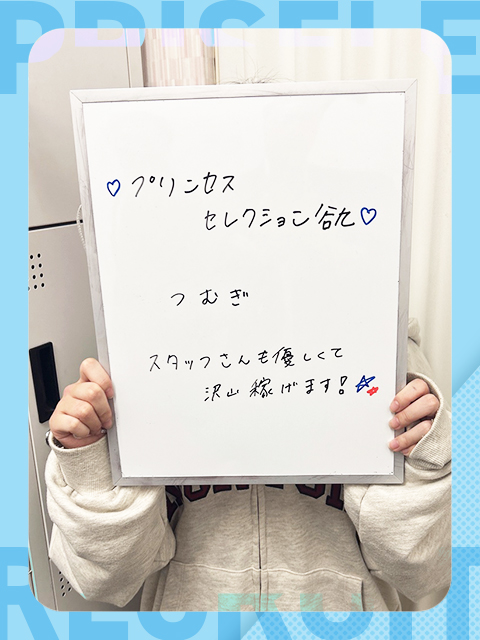 PRISELE
♡プリンセス
セレクション谷九♡
つむぎ
スタッフさんも優しくて
沢山稼げます!☆
RECRUIT